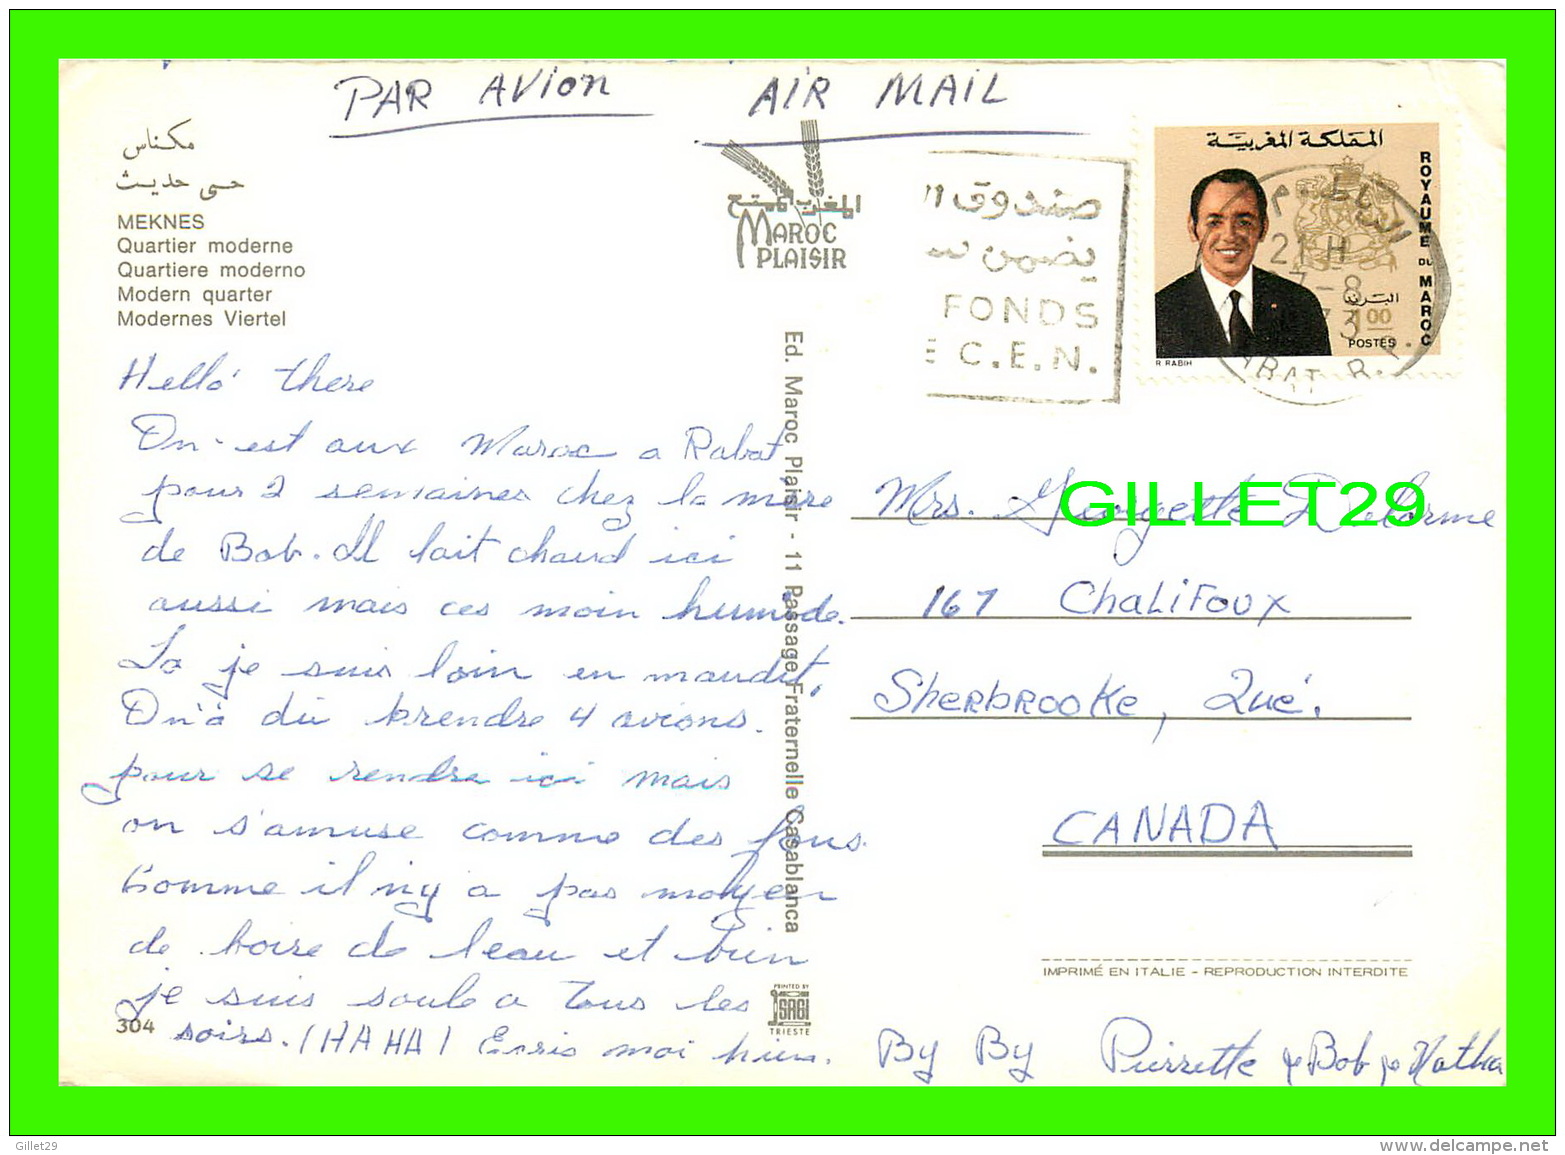 PAR AVION AIR MAIL
مكناس
حي حديث
MEKNES
Quartier moderne
Quartiere moderno
Modern quarter
Modernes Viertel
المغرب الممتع
MAROC
PLAISIR
صندوق ال
يضمن
FONDS
E C.E.N.
المملكة المغربية
ROYAUME DU MAROC
البريد
1.00
POSTES
R. RABIH
الرباط
21 H
7-8
73
RABAT R.P.
Hello there
On est aux Maroc a Rabat
pour 2 semaines chez la mère
de Bob. Il fait chaud ici
aussi mais ces moin humide.
La je suis loin en maudit,
On a dû prendre 4 avions.
pour se rendre ici mais
on s'amuse comme des fous.
Comme il n'y a pas moyen
de boire de l'eau et bien
je suis soule a tous les
soirs. (HA HA) Ecris moi bien.
Ed. Maroc Plaisir - 11 Passage Fraternelle Casablanca
Mrs. Georgette Delorme
167 CHALIFOUX
SHERBROOKE, Qué.
CANADA
GILLET29
IMPRIMÉ EN ITALIE - REPRODUCTION INTERDITE
304
PRINTED BY
SAGI
TRIESTE
By By Pierrette & Bob & Natha
Gillet29
www.delcampe.net